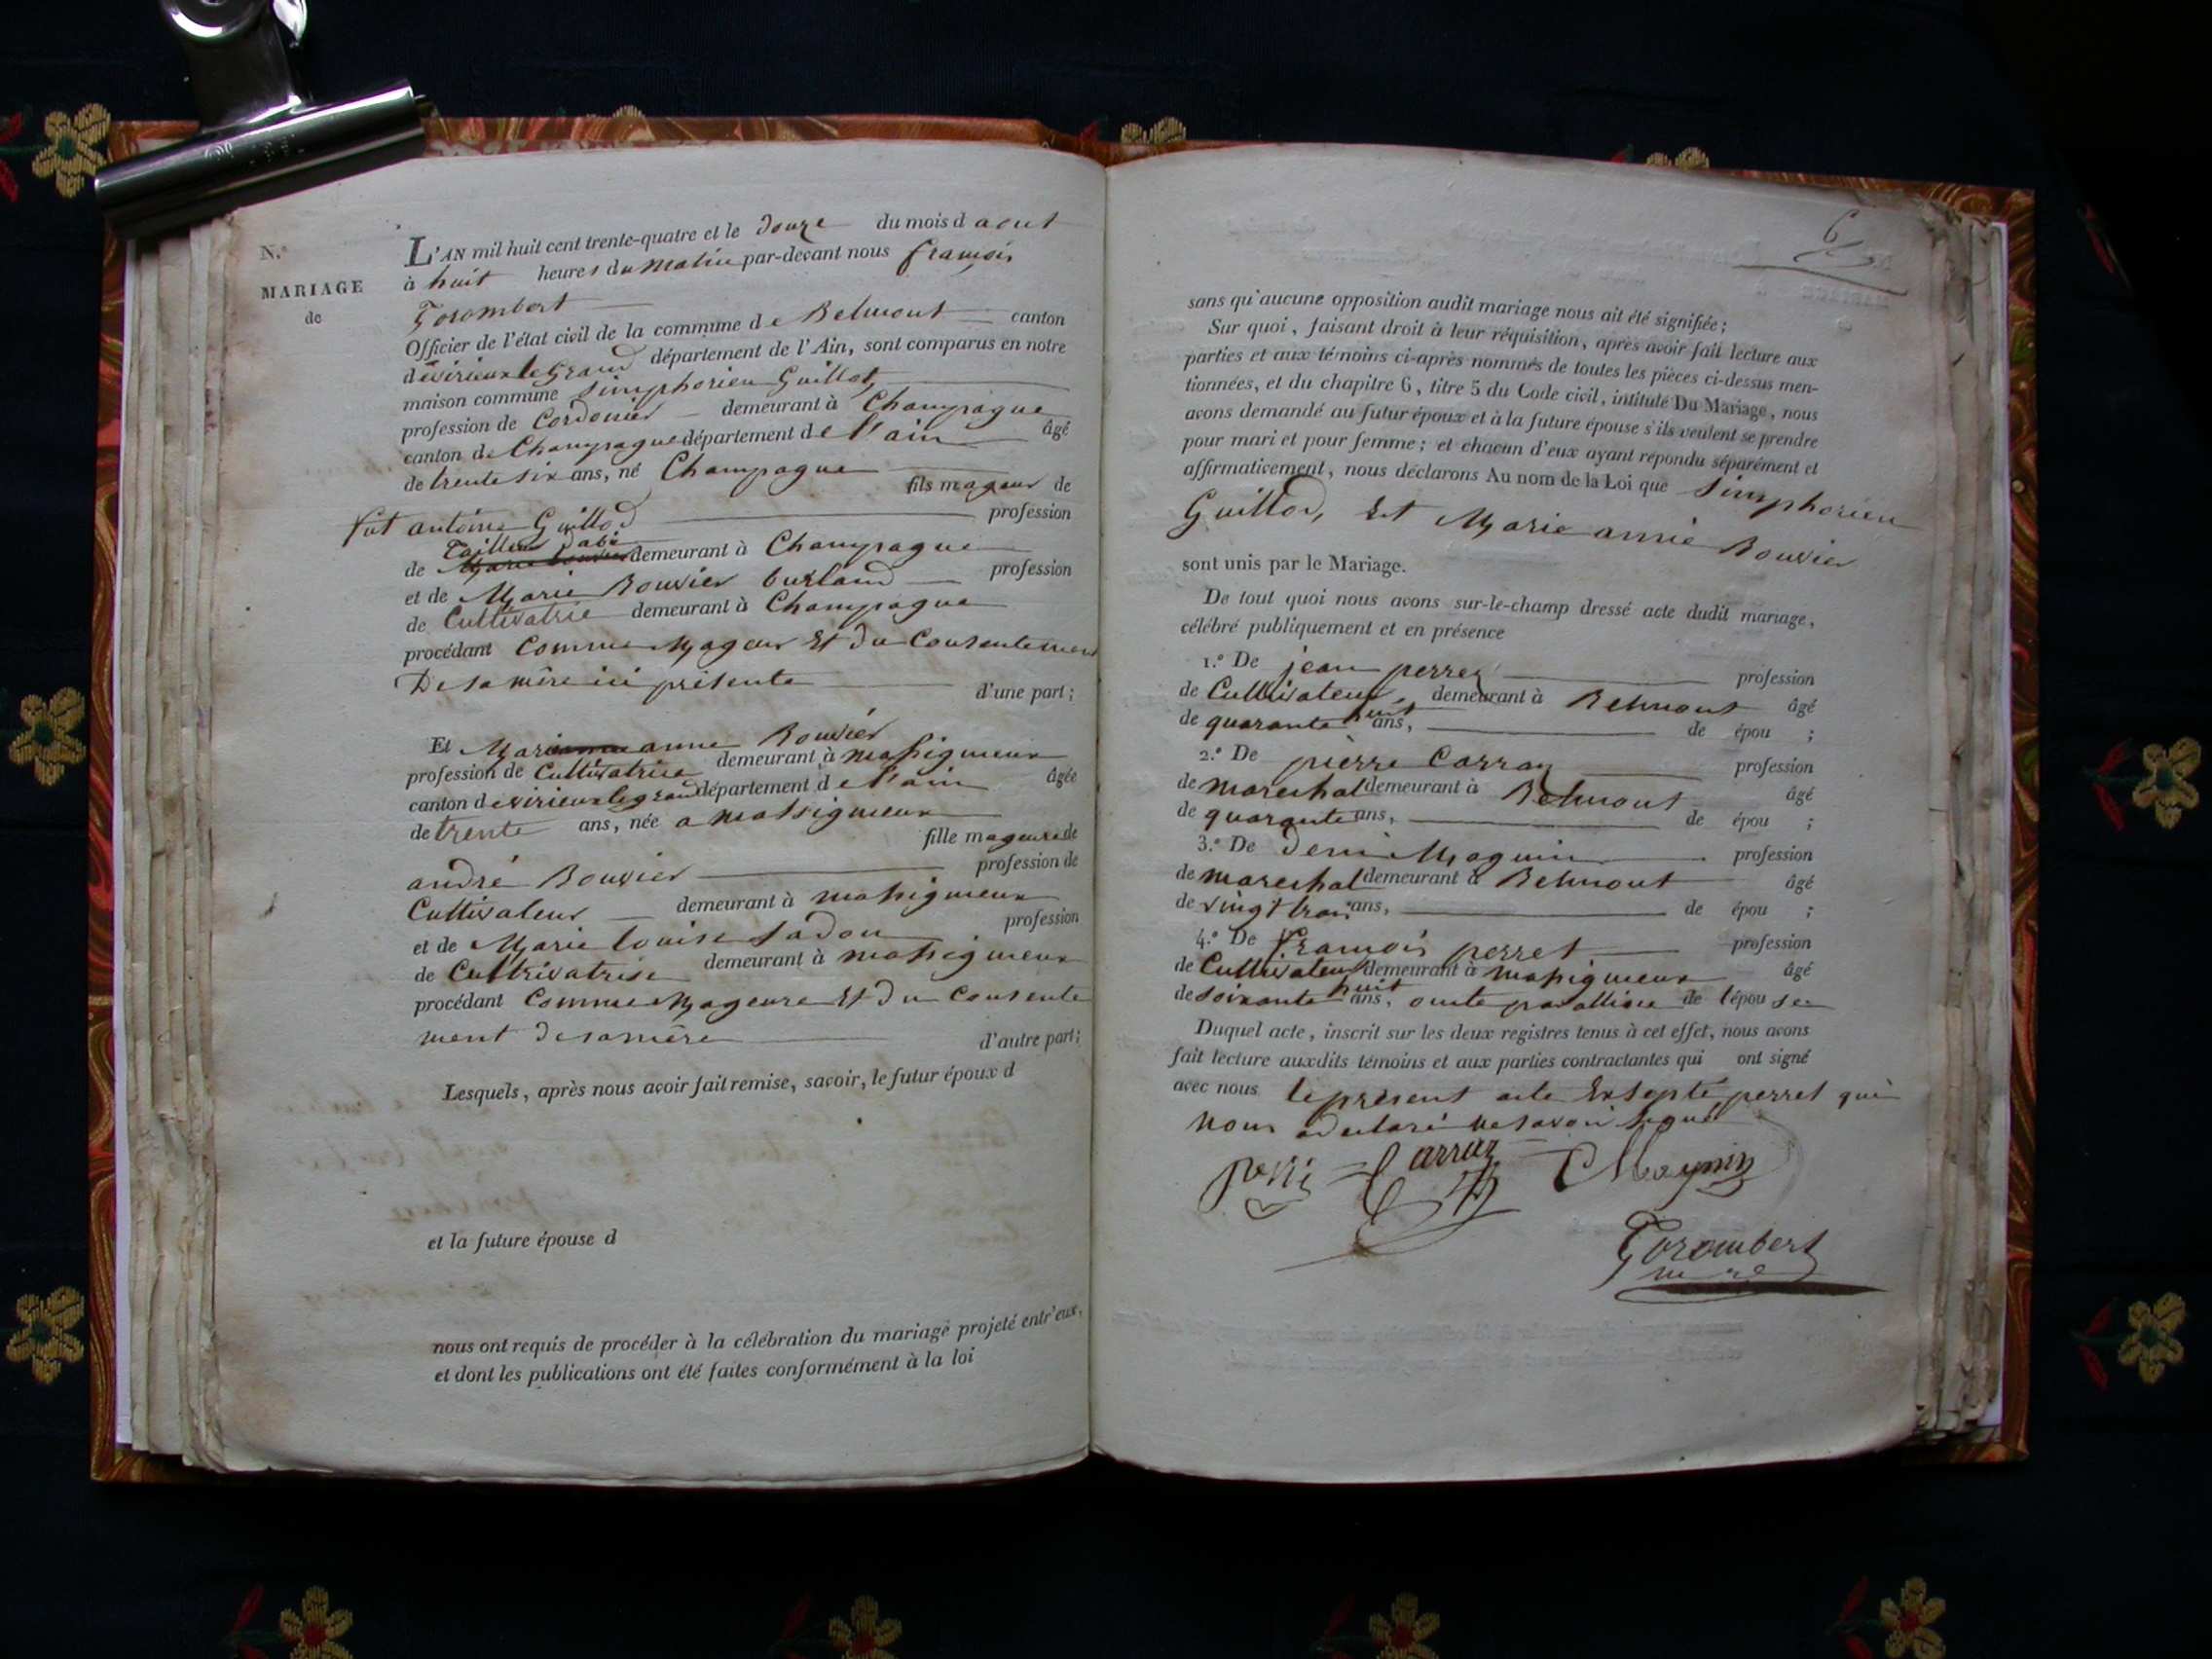 N.°
MARIAGE
de
L'AN mil huit cent trente-quatre et le douze du mois d aout
à huit heures du matin par-devant nous françois
Gorombert
Officier de l'état civil de la commune de Belmont canton
de virieux le Grand département de l'Ain, sont comparus en notre
maison commune Simphorien Guillot
profession de Cordonier demeurant à Champagne
canton de Champagne département de l'ain âgé
de trente six ans, né Champagne
fils mageur de
fut antoine Guillod profession
de Tailleur dabi demeurant à Champagne
et de Marie Bouvier burland profession
de Cultivatrie demeurant à Champagne
procédant Comme Mageur Et du Consentement
De sa mère ici présente d'une part;
Et Marie anne Bouvier
profession de Cultivatrice demeurant à massigneux
canton de virieux le grand département de l'ain âgée
de trente ans, née a massigneux
fille mageure de
andré Bouvier profession de
Cultivateur demeurant à massigneux
et de Marie louise Sadou profession
de Cultrivatrise demeurant à massigneux
procédant Comme Mageure Et du Consente
ment de sa mère d'autre part;
Lesquels, après nous avoir fait remise, savoir, le futur époux d
et la future épouse d
nous ont requis de procéder à la célébration du mariage projeté entr'eux,
et dont les publications ont été faites conformément à la loi
6
sans qu'aucune opposition audit mariage nous ait été signifiée;
Sur quoi, faisant droit à leur réquisition, après avoir fait lecture aux
parties et aux témoins ci-après nommés de toutes les pièces ci-dessus men-
tionnées, et du chapitre 6, titre 5 du Code civil, intitulé Du Mariage, nous
avons demandé au futur époux et à la future épouse s'ils veulent se prendre
pour mari et pour femme; et chacun d'eux ayant répondu séparément et
affirmativement, nous déclarons Au nom de la Loi que Simphorien
Guillod, Et Marie annie Bouvier
sont unis par le Mariage.
De tout quoi nous avons sur-le-champ dressé acte dudit mariage,
célébré publiquement et en présence
1.° De jean perret profession
de Cultivateur demeurant à Belmont âgé
de quarante huit ans, de épou ;
2.° De pierre Carraz profession
de mareshal demeurant à Belmont âgé
de quarante ans, de épou ;
3.° De Deni Magnin profession
de mareshal demeurant à Belmont âgé
de vingt trois ans, de épou ;
4.° De françois perret profession
de Cultrivateur demeurant à massigneux âgé
de soixante huit ans, de l'épou se
Duquel acte, inscrit sur les deux registres tenus à cet effet, nous avons
fait lecture auxdits témoins et aux parties contractantes qui ont signé
avec nous le présent acte Exsepté perret qui
nous a declaré ne savoir signé
Carraz Magnin
Gorombert